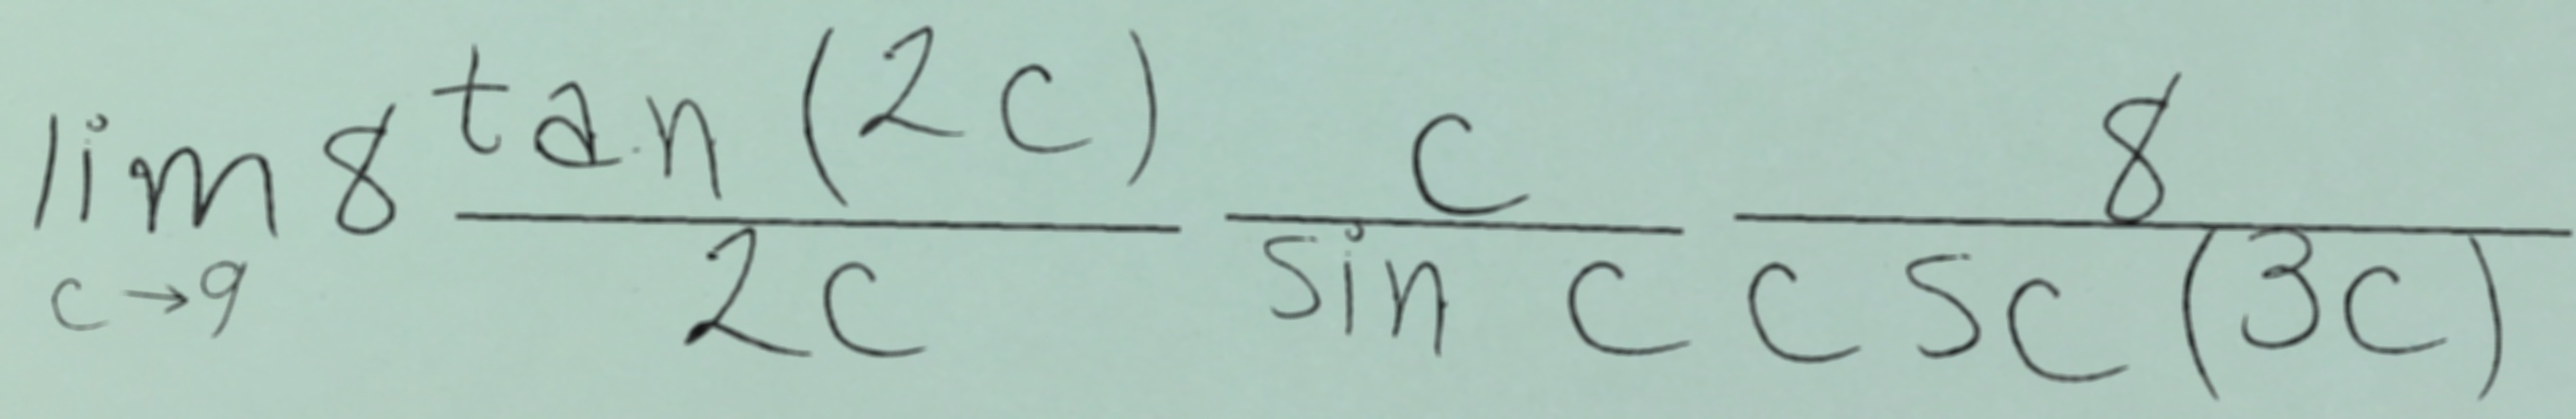 \lim_{c \to 9} 8 \frac{\tan(2c)}{2c} \frac{c}{\sin c} \frac{8}{\csc(3c)}